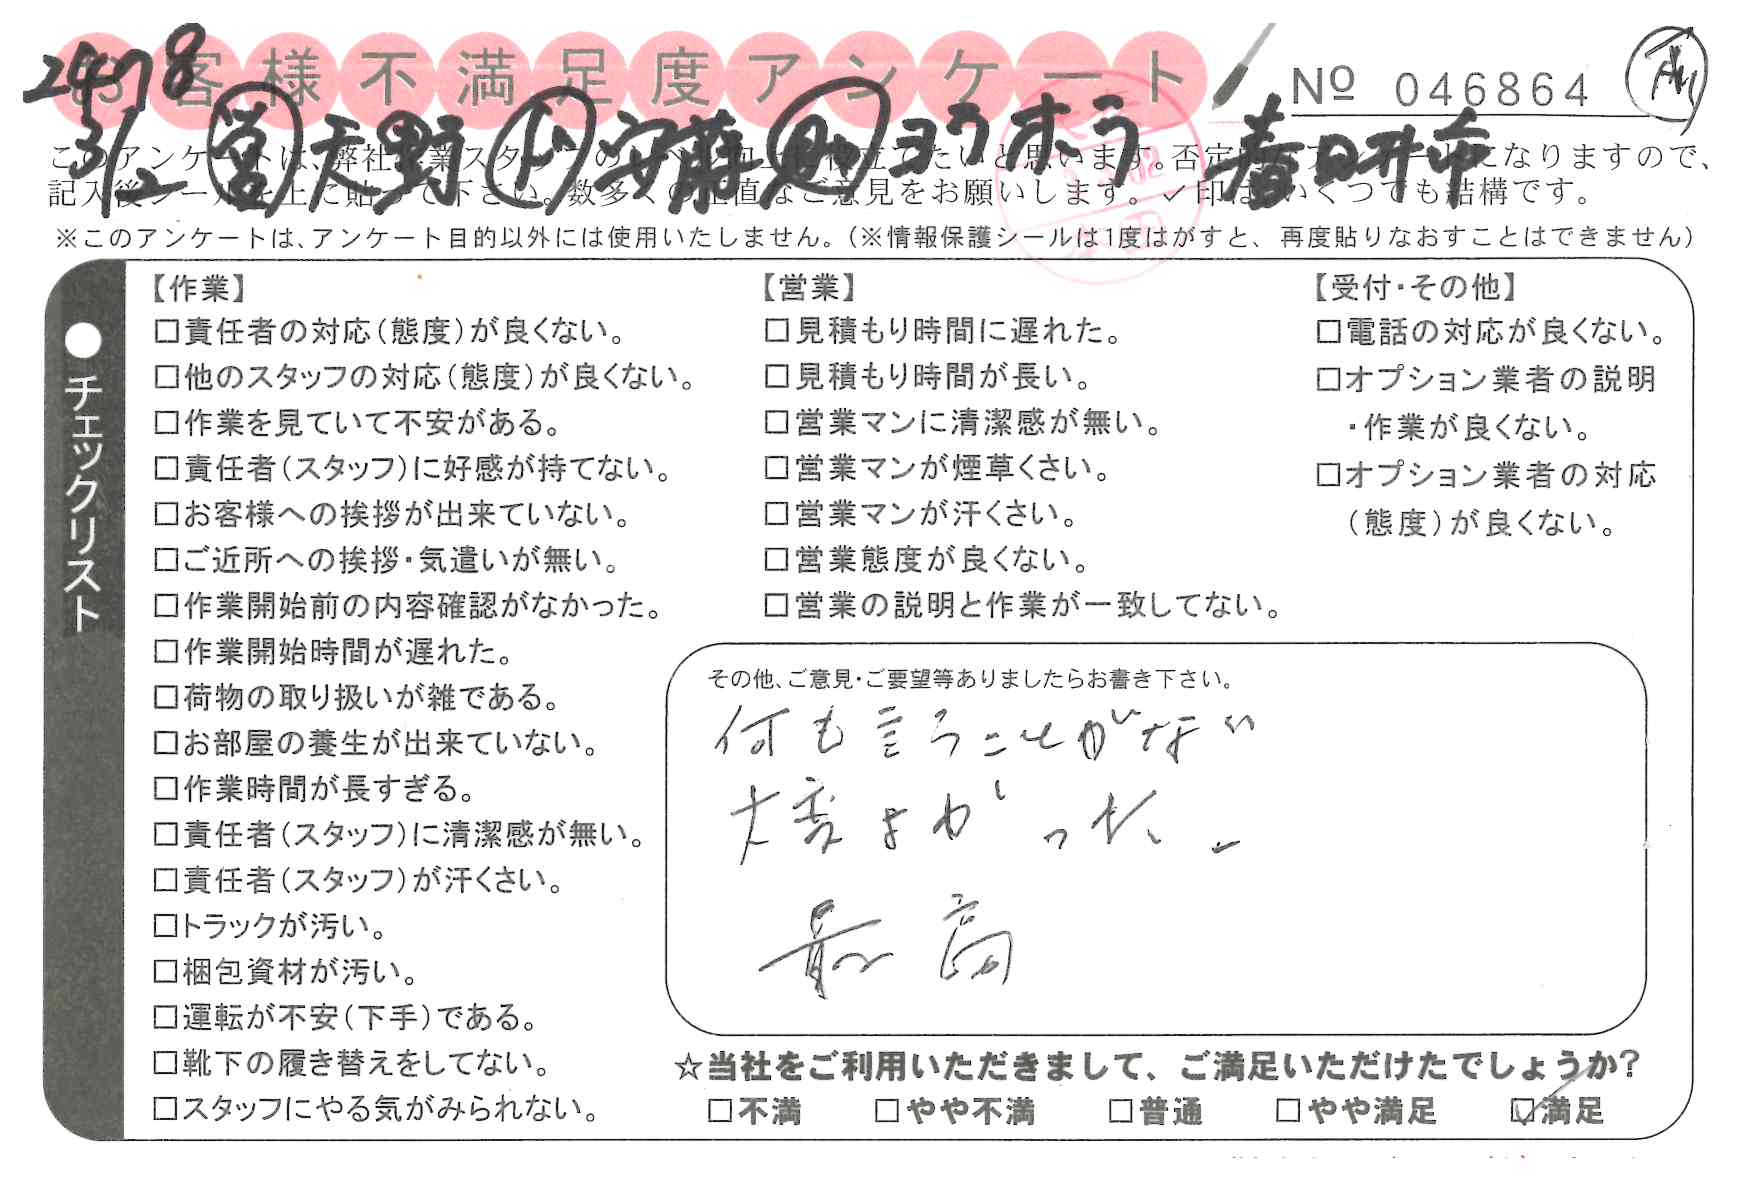 お客様不満足度アンケート
No 046864
2478
3/2 営 天野 ト 安藤 助 ヨウ オオラ 春日井市
このアンケートは、弊社作業スタッフのレベル向上に役立てたいと思います。否定的なアンケートになりますので、
記入後シールを上に貼って下さい。数多くの正直なご意見をお願いします。✓印は、いくつでも結構です。
※このアンケートは、アンケート目的以外には使用いたしません。(※情報保護シールは1度はがすと、再度貼りなおすことはできません)
●チェックリスト
【作業】
□責任者の対応(態度)が良くない。
□他のスタッフの対応(態度)が良くない。
□作業を見ていて不安がある。
□責任者(スタッフ)に好感が持てない。
□お客様への挨拶が出来ていない。
□ご近所への挨拶・気遣いが無い。
□作業開始前の内容確認がなかった。
□作業開始時間が遅れた。
□荷物の取り扱いが雑である。
□お部屋の養生が出来ていない。
□作業時間が長すぎる。
□責任者(スタッフ)に清潔感が無い。
□責任者(スタッフ)が汗くさい。
□トラックが汚い。
□梱包資材が汚い。
□運転が不安(下手)である。
□靴下の履き替えをしてない。
□スタッフにやる気がみられない。
【営業】
□見積もり時間に遅れた。
□見積もり時間が長い。
□営業マンに清潔感が無い。
□営業マンが煙草くさい。
□営業マンが汗くさい。
□営業態度が良くない。
□営業の説明と作業が一致してない。
【受付・その他】
□電話の対応が良くない。
□オプション業者の説明
・作業が良くない。
□オプション業者の対応
(態度)が良くない。
その他、ご意見・ご要望等ありましたらお書き下さい。
何も言うことがない
大変よかった。
最高
☆当社をご利用いただきまして、ご満足いただけたでしょうか?
□不満 □やや不満 □普通 □やや満足 ☑満足